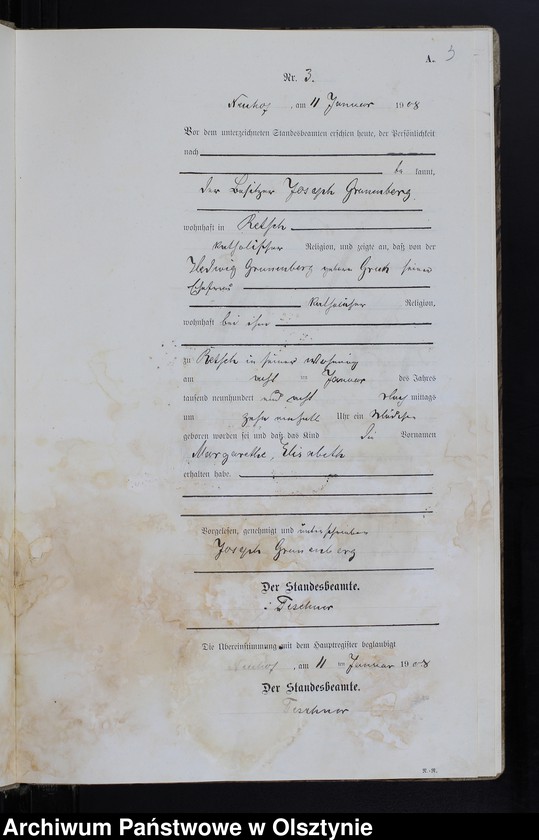 A. 3
Nr. 3.
Neuhof, am 11 Januar 1908
Vor dem unterzeichneten Standesbeamten erschien heute, der Persönlichkeit
nach
be kannt,
der Besitzer Joseph Grunenberg
wohnhaft in Retsch
katholischer Religion, und zeigte an, daß von der
Hedwig Grunenberg geborne seiner
Ehefrau
katholischer Religion,
wohnhaft bei ihm
zu Retsch in seiner Wohnung
am acht ten Januar des Jahres
tausend neunhundert und acht Nach mittags
um zehn einhalb Uhr ein Mädchen
geboren worden sei und daß das Kind die Vornamen
Margarethe, Elisabeth
erhalten habe.
Vorgelesen, genehmigt und unterschrieben
Joseph Grunenberg
Der Standesbeamte.
Teschner
Die Übereinstimmung mit dem Hauptregister beglaubigt
Neuhof, am 11 ten Januar 1908
Der Standesbeamte.
Teschner
R.-R.
Archiwum Państwowe w Olsztynie